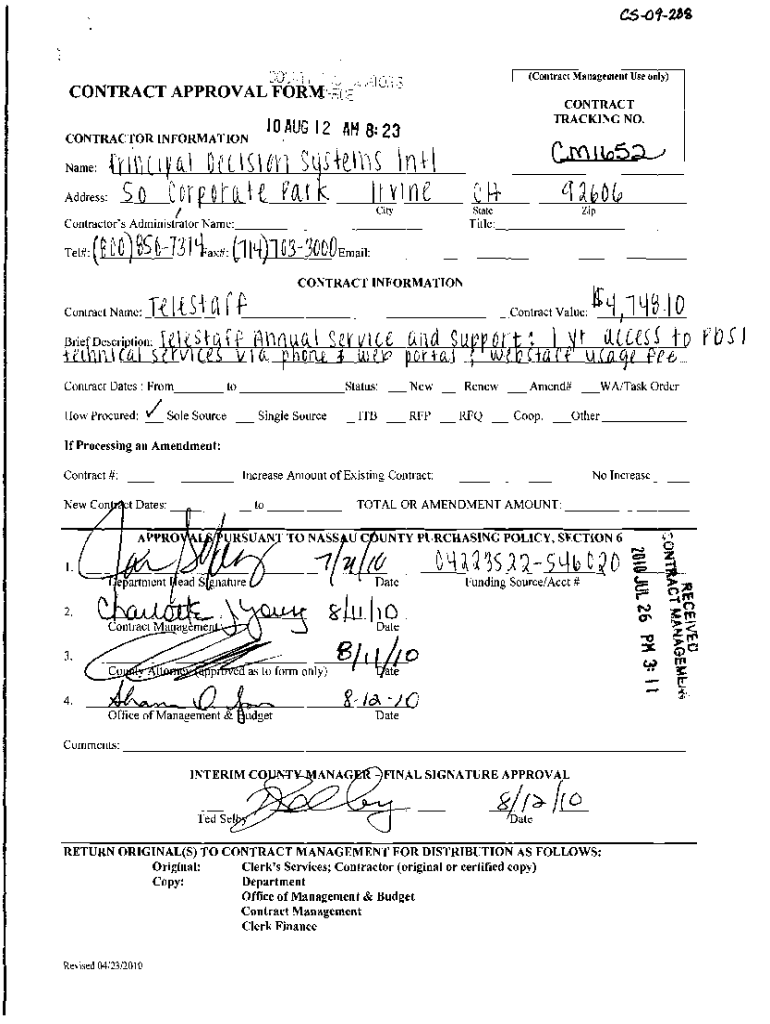 CS-09-208
CONTRACT APPROVAL FORM
(Contract Management Use only)
CONTRACT
TRACKING NO.
CM1652
10 AUG 12 AM 8:23
CONTRACTOR INFORMATION
Name: Principal Decision Systems Intl
Address: 50 Corporate Park Irvine CA 92606
City State Zip
Contractor's Administrator Name: Title:
Tel#: (800) 850-7314 Fax#: (714) 703-3000 Email:
CONTRACT INFORMATION
Contract Name: Telestaff Contract Value: $4,748.10
Brief Description: Telestaff Annual Service and Support: 1 yr access to PDSI
technical services via phone & web portal; webstaff usage fee
Contract Dates : From to Status: New Renew Amend# WA/Task Order
How Procured: ✓ Sole Source Single Source ITB RFP RFQ Coop. Other
If Processing an Amendment:
Contract #: Increase Amount of Existing Contract: No Increase
New Contract Dates: to TOTAL OR AMENDMENT AMOUNT:
APPROVALS PURSUANT TO NASSAU COUNTY PURCHASING POLICY, SECTION 6
1. 7/21/10 04223522-546020
Department Head Signature Date Funding Source/Acct #
2. Charlotte J Young 8/11/10
Contract Management Date
3. 8/11/10
County Attorney (approved as to form only) Date
4. 8-12-10
Office of Management & Budget Date
RECEIVED
CONTRACT MANAGEMENT
2010 JUL 26 PM 3:11
Comments:
INTERIM COUNTY MANAGER - FINAL SIGNATURE APPROVAL
8/12/10
Ted Selby Date
RETURN ORIGINAL(S) TO CONTRACT MANAGEMENT FOR DISTRIBUTION AS FOLLOWS:
Original: Clerk's Services; Contractor (original or certified copy)
Copy: Department
Office of Management & Budget
Contract Management
Clerk Finance
Revised 04/23/2010